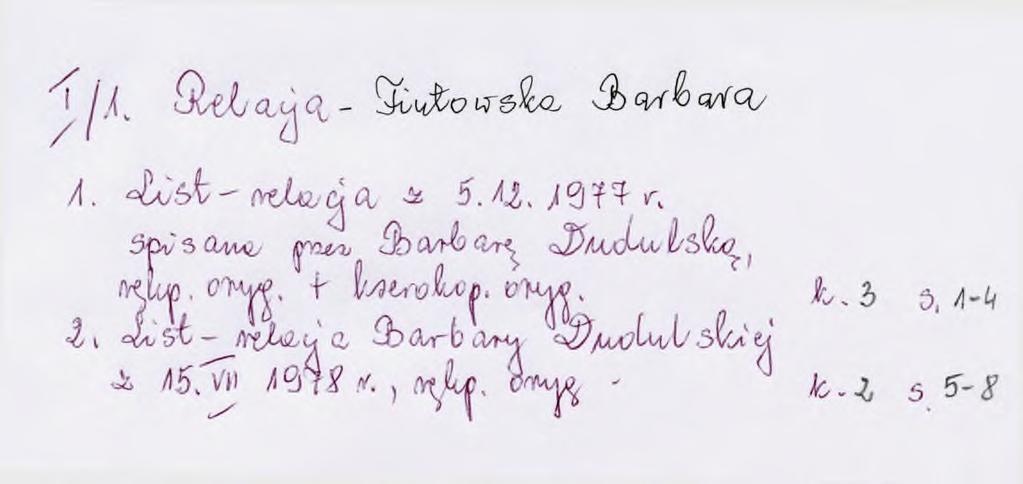 I/1. Relacja - Fiutowska Barbara
1. List - relacja z 5.12.1977 r.
spisana przez Barbarę Dudulską,
rękp. oryg. + kserokop. oryg. k. 3 s. 1-4
2. List - relacja Barbary Dudulskiej
z 15.VII 1978 r., rękp. oryg - k. 2 s. 5-8